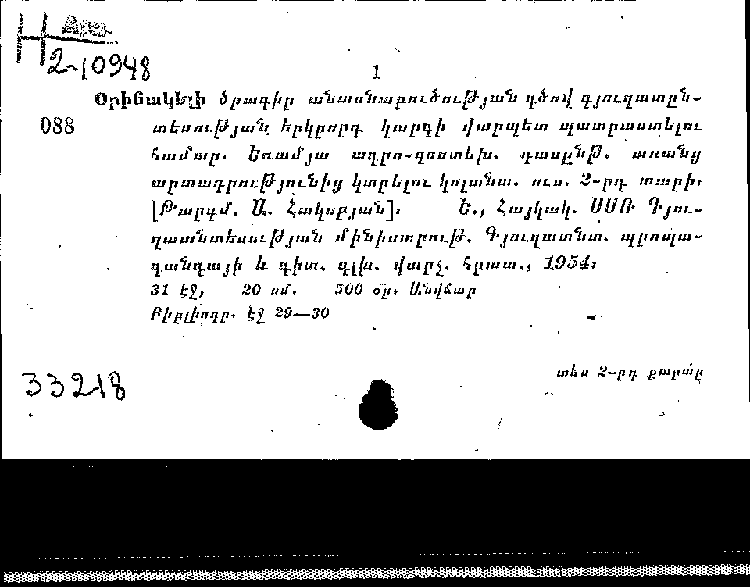 2-10948
1
Օրինակելի ծրագիր անասնաբուծության գծով գյուղատըն-
088
տեսության երկրորդ կարգի վարպետ պատրաստելու
համար. Եռամյա ագրո-զոոտեխ. դասընթ. առանց
արտադրությունից կտրելու կոլտնտ. ուս. 2-րդ տարի.
[Թարգմ. Ա. Հակոբյան]. Ե., Հայկակ. ՍՍՌ Գյու-
ղատնտեսության մինիստրութ. Գյուղատնտ. պրոպա-
գանդայի և գիտ. գլխ. վարչ. հրատ., 1954.
31 էջ, 20 սմ. 500 օր. Անվճար
Բիբլիոգր. էջ 29—30
33218
տես 2-րդ քարտը